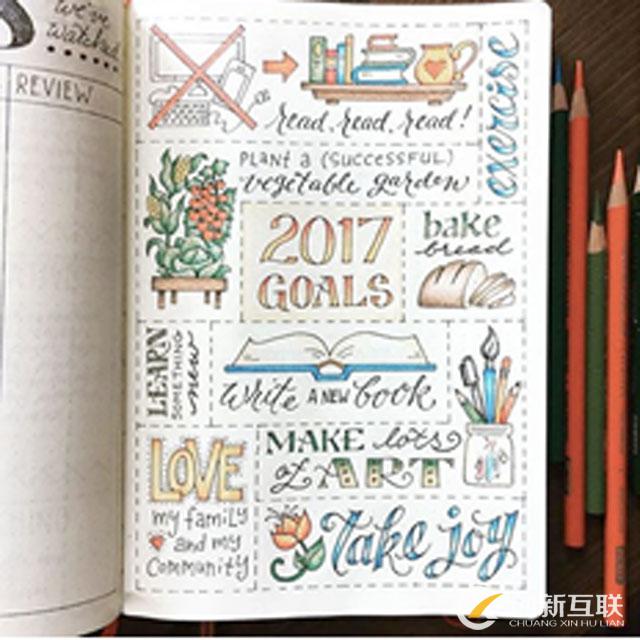 we've
watched
REVIEW
read, read, read!
exercise
PLANT A (SUCCESSFUL)
vegetable garden
2017
GOALS
bake
bread
LEARN
SOMETHING
new
Write A NEW book
MAKE lots
of ART
LOVE
my family
and my
community
Take joy
创新互联
CHUANG XIN HU LIAN